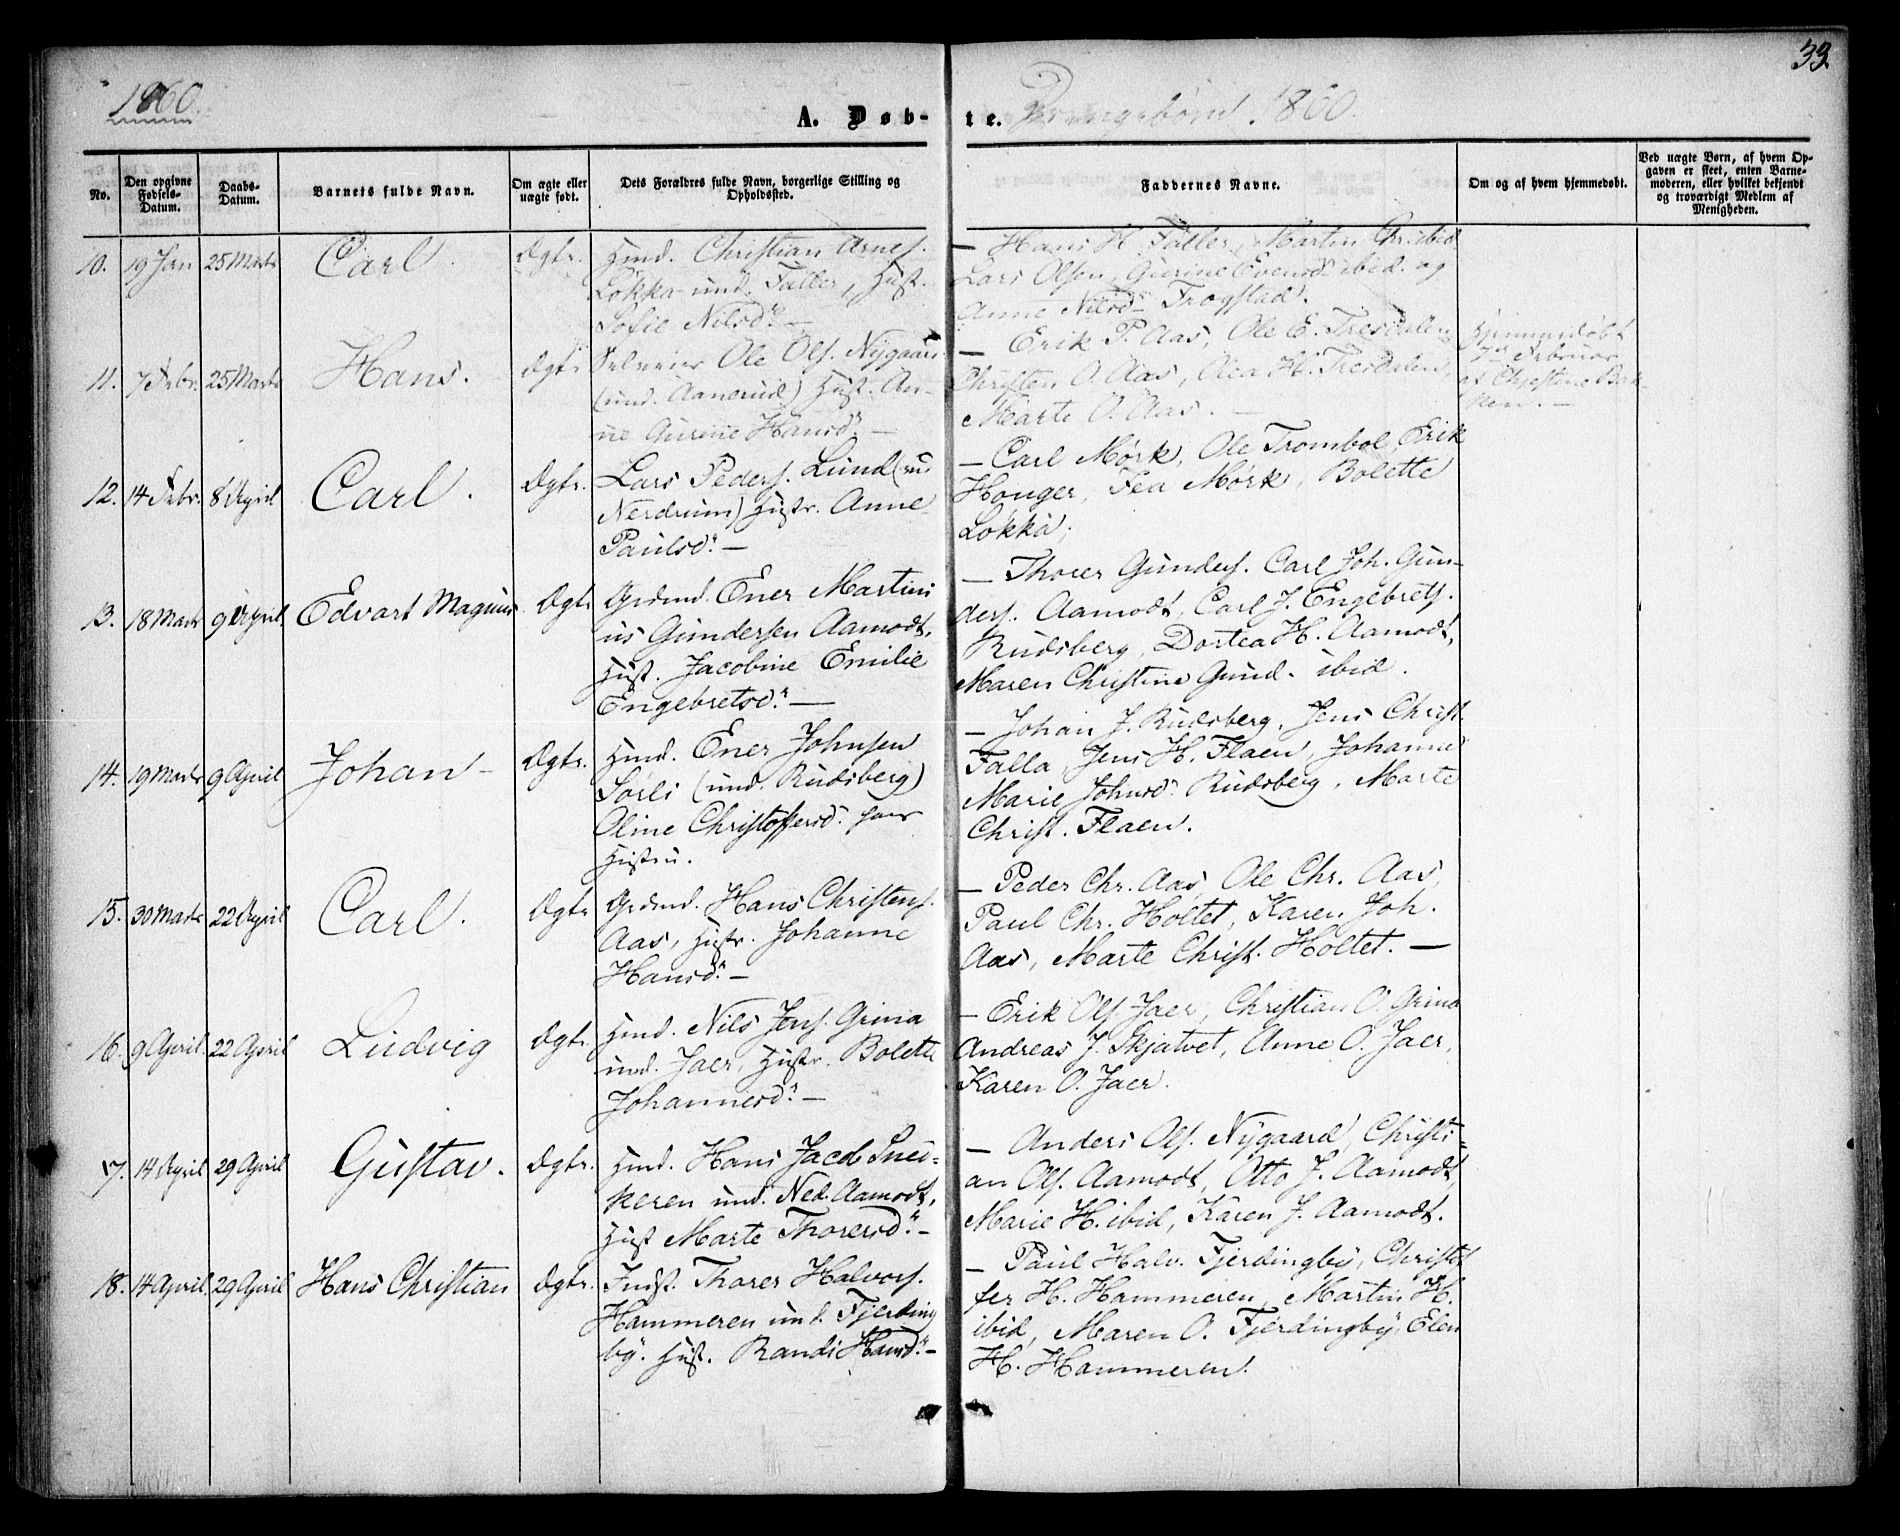 1860.
33.
A. Døb-
te. Drengebørn 1860.
No.
Den opgivne Fødsels-Datum.
Daabs-Datum.
Barnets fulde Navn.
Om ægte eller uægte født.
Dets Forældres fulde Navn, borgerlige Stilling og Opholdssted.
Faddernes Navne.
Om og af hvem hjemmedøbt.
Ved uægte Børn, af hvem Op-
gaven er skeet, enten Barne-
moderen, eller hvilket bekjendt
og troværdigt Medlem af
Menigheden.
10. 19 Jan 25 Marts Carl. Ægte. Hmd. Christian Arnes.
Løkka und. Faller, Hust.
Sofie Nilsd. —
— Hans H. Faller, Martin Chr. ibid
Lars Olsen, Gurine Evensd ibid. og
Anne Nilsd Trogstad.
11. 7 Febr. 25 Marts Hans. Ægte Selveier Ole Ols. Nygaard
(und. Aanerud) Hust. An-
ne Gurine Hansd. —
— Erik P. Aas, Ole E. Tresdalen
Christen O. Aas, Olea H. Tresdalen,
Marte O. Aas. —
Hjemmedøbt
7de Februar
af Christine Bak-
ken. —
12. 14 Febr. 8 April Carl. Ægte. Lars Peders. Lund (und
Nerdrum) Hustr. Anne
Paulsd. —
— Carl Mørk, Ole Trombol, Erik
Honger, Fea Mørk, Bolette
Løkka,
13. 18 Marts 9 April Edvart Magnus Ægte Grdmd. Ener Martini
us Gundersen Aamodt,
Hust. Jacobine Emilie
Engebretsd. —
— Thorer Gunders. Carl Joh. Gun-
ders. Aamodt, Carl J. Engebrets.
Rudsberg, Dortea H. Aamodt,
Maren Christine Gund. ibid.
14. 19 Marts 9 April Johan — Ægte. Hmd. Ener Johnsen
Sørli (und. Rudsberg)
Oline Christoffersd. hans
Hustru.
— Johan J. Rudsberg, Jens Christ.
Falla, Jens H. Flaen, Johanne
Marie Johnsd. Rudsberg, Marte
Christ. Flaen.
15. 30 Marts 22 April Carl. Ægte Grdmd. Hans Christens.
Aas, Hustr. Johanne
Hansd. —
— Peder Chr. Aas, Ole Chr. Aas,
Paul Chr. Holtet, Karen Joh.
Aas, Marte Christ. Holtet. —
16. 9 April. 22 April Ludvig Ægte. Hmd. Nils Jens. Grina
und. Jaer, Hustr. Bolette
Johannesd. —
— Erik Ols. Jaer, Christian O. Grina
Andreas J. Skjatvet, Anne O. Jaer,
Karen O. Jaer.
17. 14 April 29 April Gustav. Ægte. Hmd. Hans Jacob Snei-
keren und. Ned. Aamodt,
Hust Marte Thorersd. —
— Anders Ols. Nygaard, Christi-
an Ols. Aamodt, Otto J. Aamodt,
Marie H. ibid, Karen J. Aamodt.
18. 14 April 29 April Hans Christian Ægte. Indst. Thorer Halvors.
Hammeren und. Fjerding
by. Hust. Randi Hansd. —
— Paul Halv. Fjerdingby, Christof
fer H. Hammeren, Martin H.
ibid, Maren O. Fjerdingby, Elen
H. Hammeren.